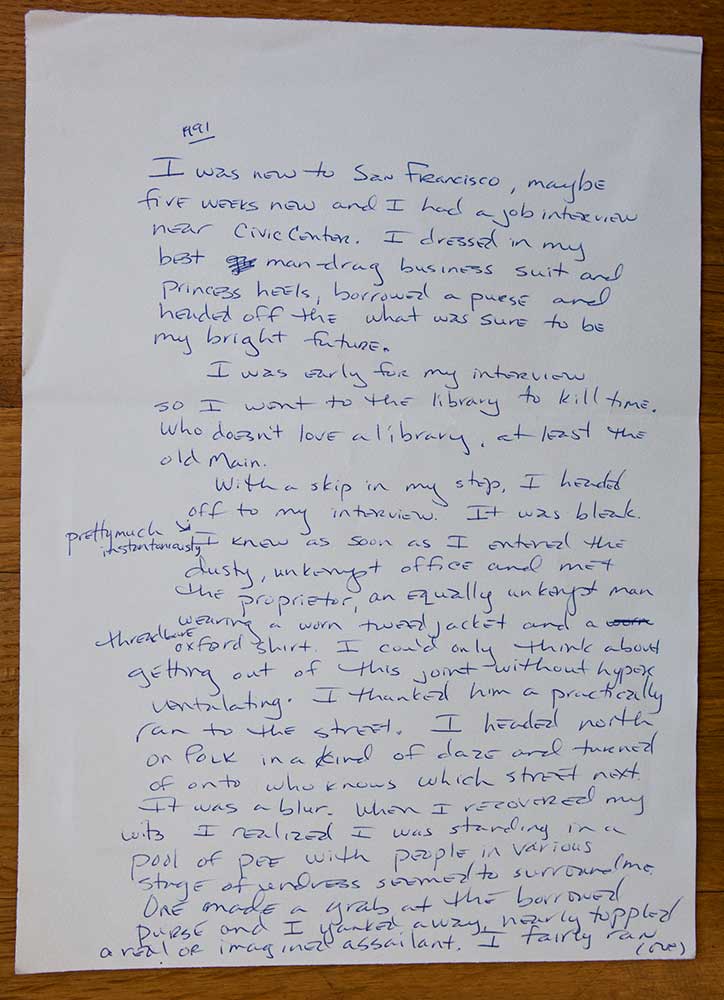 1991
I was new to San Francisco, maybe
five weeks new and I had a job interview
near Civic Center. I dressed in my
best man-drag business suit and
princess heels, borrowed a purse and
headed off the what was sure to be
my bright future.
I was early for my interview
so I went to the library to kill time.
Who doesn't love a library, at least the
old Main.
With a skip in my step, I headed
off to my interview. It was bleak.
pretty much
instantaneously
I knew as soon as I entered the
dusty, unkempt office and met
the proprietor, an equally unkempt man
wearing a worn tweed jacket and a worn
threadbare
oxford shirt. I could only think about
getting out of this joint without hyper
ventilating. I thanked him a practically
ran to the street. I headed north
on Polk in a kind of daze and turned
of onto who knows which street next.
It was a blur. When I recovered my
wits I realized I was standing in a
pool of pee with people in various
stage of undress seemed to surround me.
One made a grab at the borrowed
purse and I yanked away, nearly toppled
a real or imagined assailant. I fairly ran
(over)